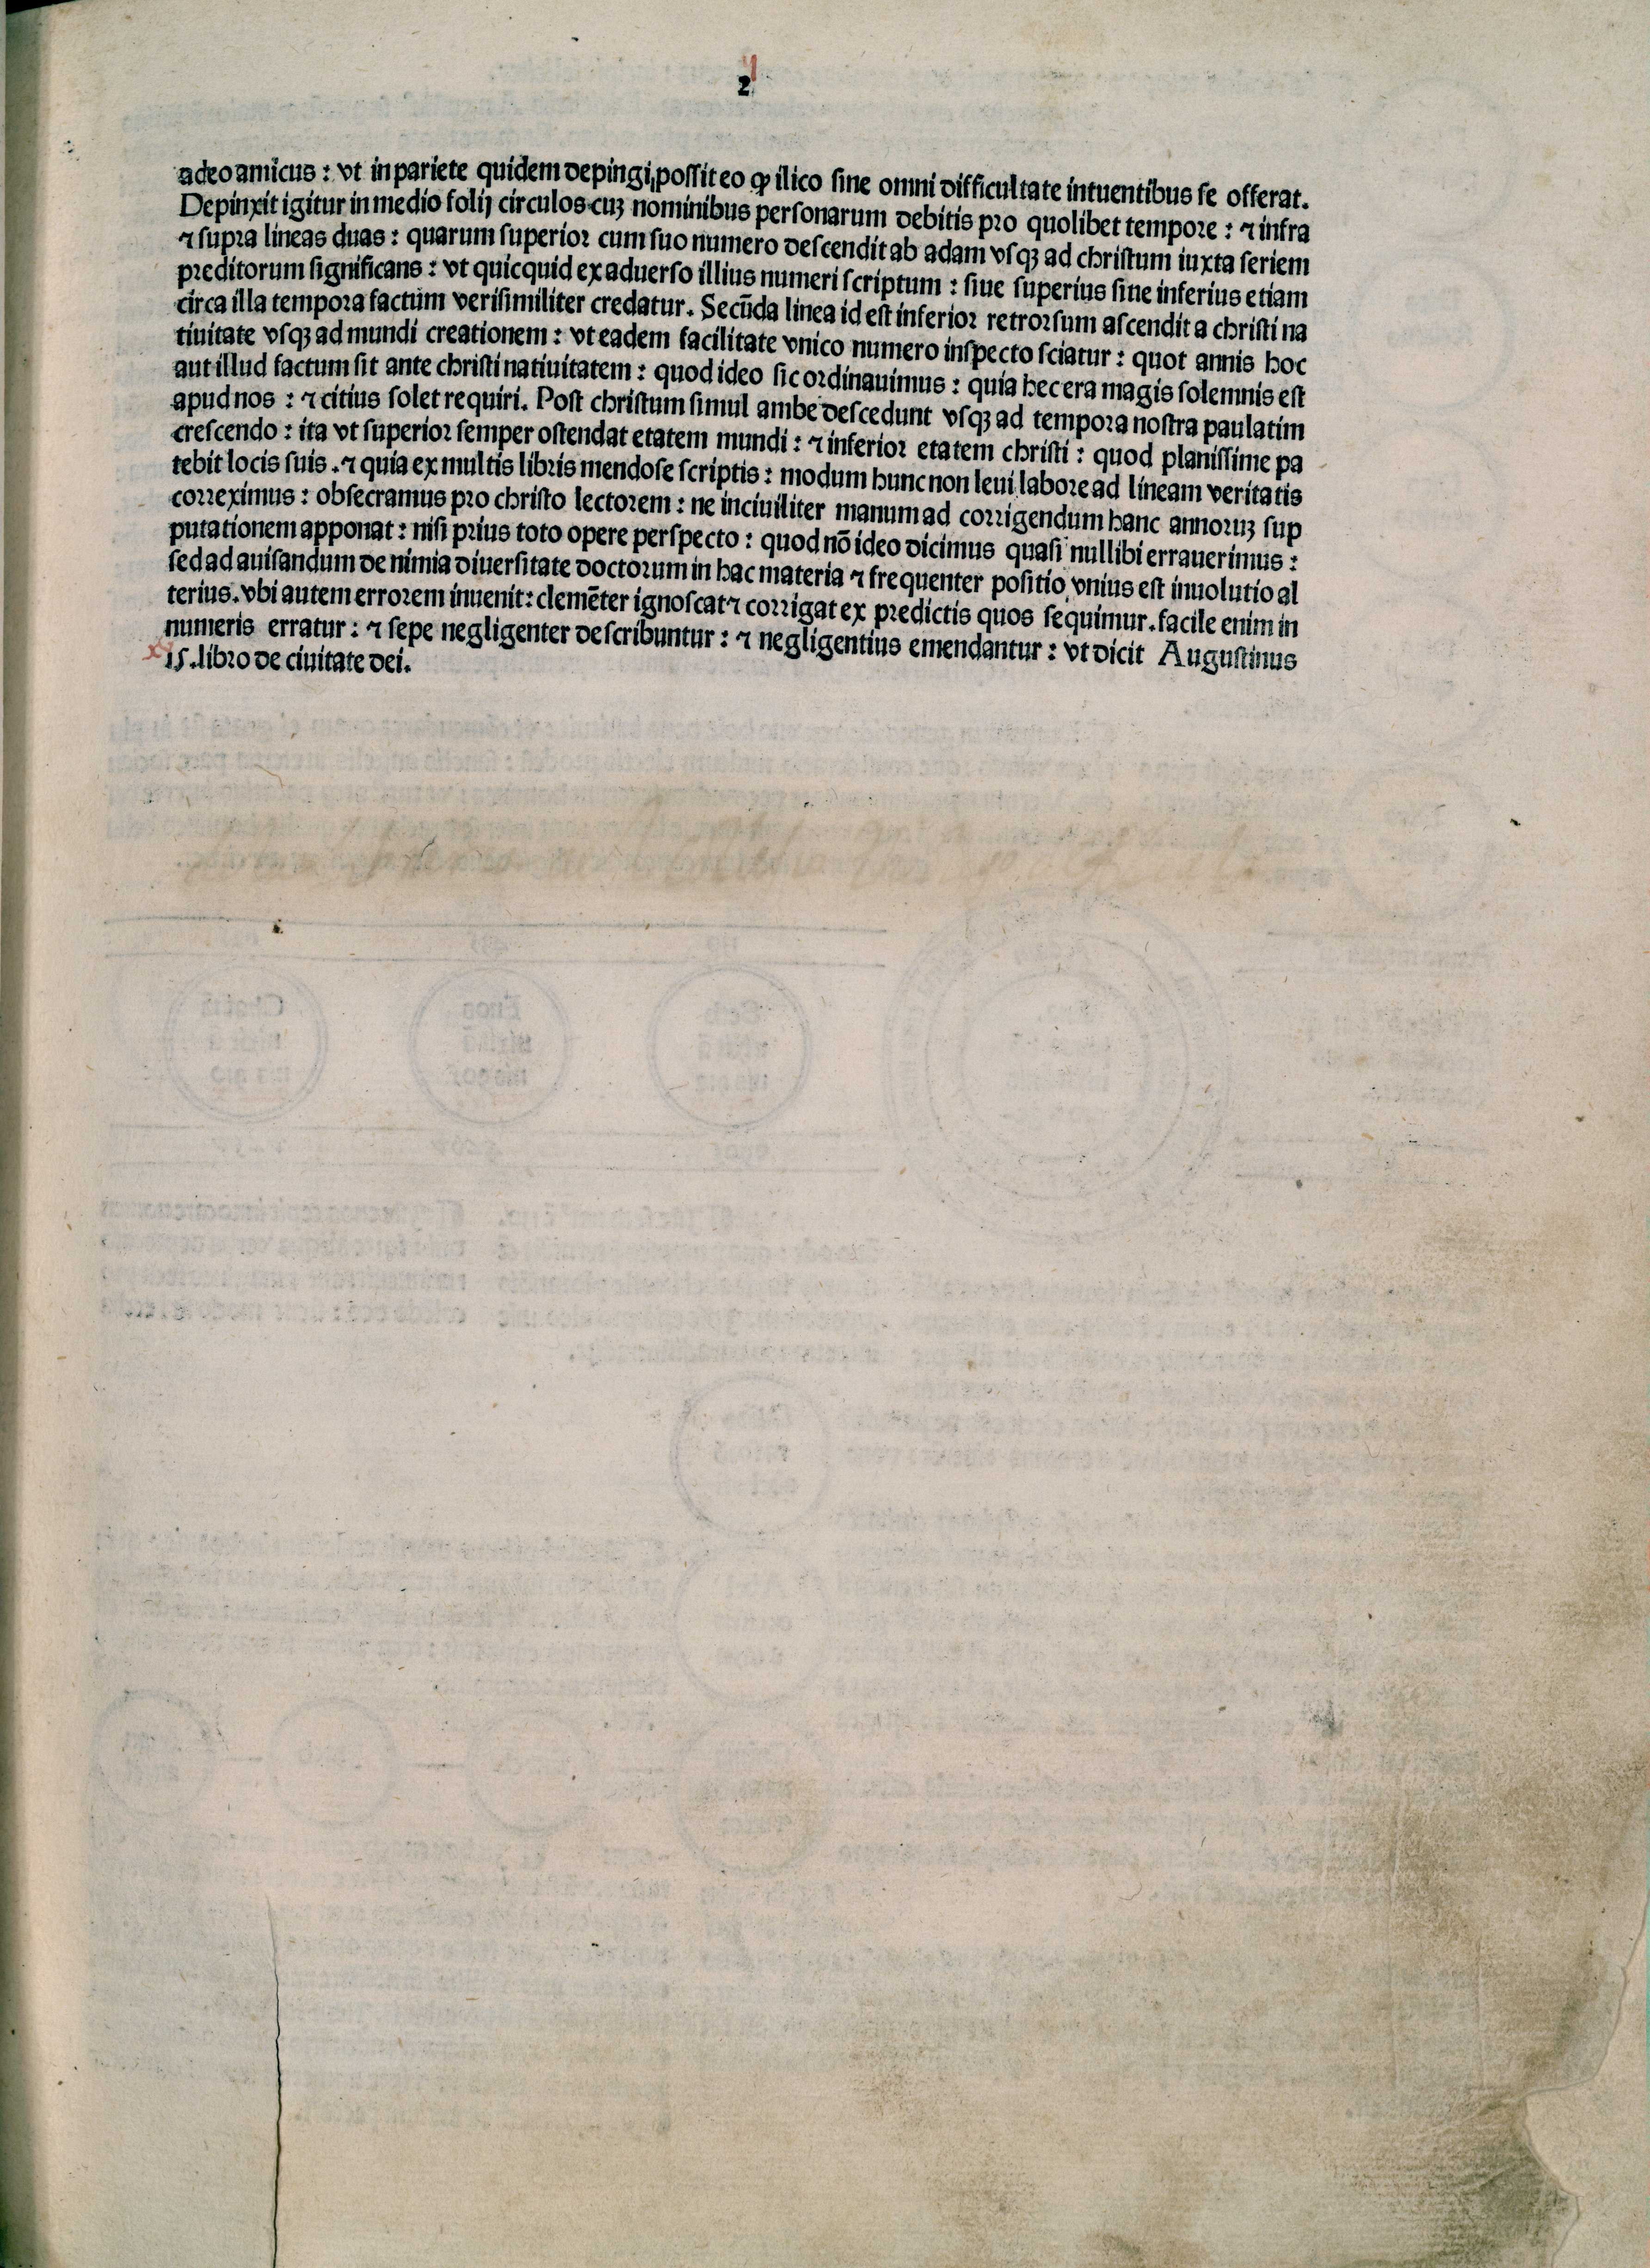 2
adeo amicus : vt in pariete quidem depingi possit eo ꝙ ilico sine omni difficultate intuentibus se offerat.
Depinxit igitur in medio folij circulos cuȝ nominibus personarum debitis pro quolibet tempore : ⁊ infra
⁊ supra lineas duas : quarum superior cum suo numero descendit ab adam vsqȝ ad christum iuxta seriem
preditorum significans : vt quicquid ex aduerso illius numeri scriptum : siue superius siue inferius etiam
circa illa tempora factum verisimiliter credatur. Secūda linea id est inferior retrorsum ascendit a christi na
tiuitate vsqȝ ad mundi creationem : vt eadem facilitate vnico numero inspecto sciatur : quot annis hoc
aut illud factum sit ante christi natiuitatem : quod ideo sic ordinauimus : quia hec era magis solemnis est
apud nos : ⁊ citius solet requiri. Post christum simul ambe descedunt vsqȝ ad tempora nostra paulatim
crescendo : ita vt superior semper ostendat etatem mundi : ⁊ inferior etatem christi : quod planissime pa
tebit locis suis . ⁊ quia ex multis libris mendose scriptis : modum hunc non leui labore ad lineam veritatis
correximus : obsecramus pro christo lectorem : ne inciuiliter manum ad corrigendum hanc annoruȝ sup
putationem apponat : nisi prius toto opere perspecto : quod nō ideo dicimus quasi nullibi errauerimus :
sed ad auisandum de nimia diuersitate doctorum in hac materia ⁊ frequenter positio vnius est inuolutio al
terius. vbi autem errorem inuenit : clemēter ignoscat ⁊ corrigat ex predictis quos sequimur. facile enim in
numeris erratur : ⁊ sepe negligenter describuntur : ⁊ negligentius emendantur : vt dicit Augustinus
15. libro de ciuitate dei.